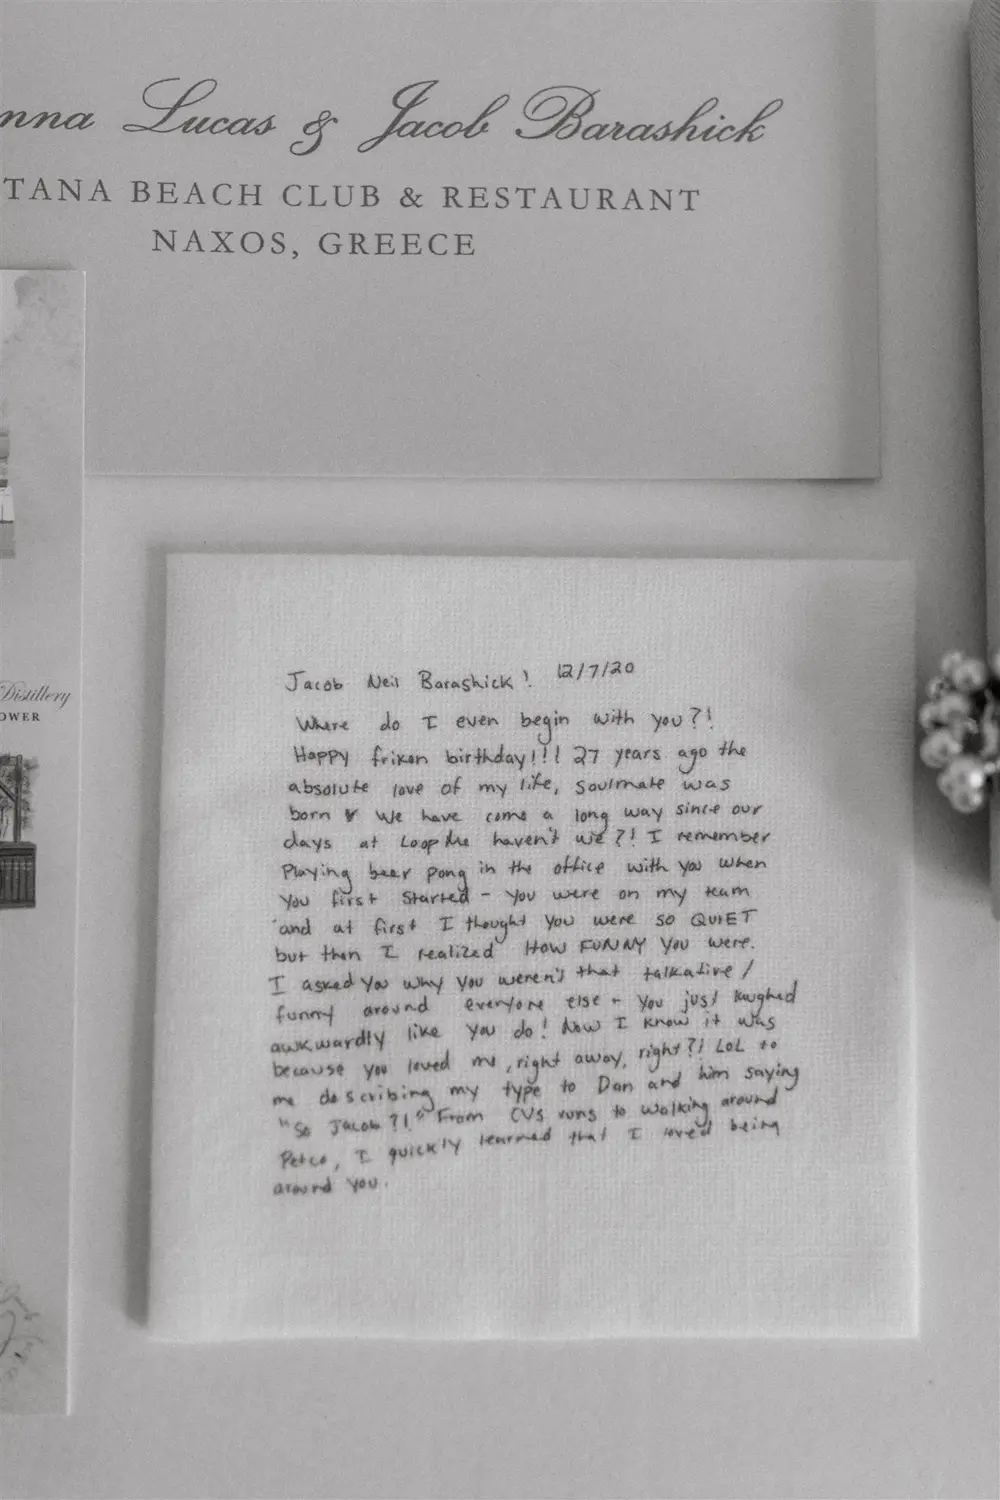 nna Lucas & Jacob Barashick
TANA BEACH CLUB & RESTAURANT
NAXOS, GREECE
Distillery
OWER
Jacob Neil Barashick! 12/7/20
Where do I even begin with you?!
Happy friken birthday!!! 27 years ago the
absolute love of my life, soulmate was
born ♥ We have come a long way since our
days at LoopMe haven't we?! I remember
Playing beer pong in the office with you when
you first started - you were on my team
and at first I thought you were so QUIET
but then I realized HOW FUNNY you were.
I asked you why you weren't that talkative/
funny around everyone else + you just laughed
awkwardly like you do! Now I know it was
because you loved me, right away, right?! LOL to
me describing my type to Dan and him saying
"So Jacob?!" From CVS runs to walking around
Petco, I quickly learned that I loved being
around you.